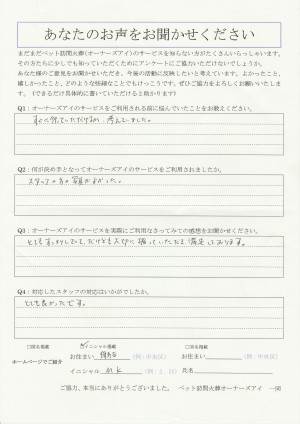 あなたのお声をお聞かせください
まだまだペット訪問火葬(オーナーズアイ)のサービスを知らない方がたくさんいらっしゃいます。
その方たちに少しでも知っていただくためにアンケートにご協力いただけないでしょうか。
あなた様のご意見をお聞かせいただき、今後の活動に反映したいと考えています。よかったこと、
嬉しかったこと、どのような些細なことでもけっこうです。ぜひご協力をよろしくお願いいたしま
す。（できるだけ具体的に書いていただけると助かります）
Q1：オーナーズアイのサービスをご利用される前に悩んでいたことをお教えください。
考えていました。
Q2：何が決め手となってオーナーズアイのサービスをご利用されましたか。
スタッフの方の
がよかった。
Q3：オーナーズアイのサービスを実際にご利用なさってみての感想をお聞かせください。
とても
満足しております。
Q4：対応したスタッフの対応はいかがでしたか。
とても良かったです。
□匿名掲載 イニシャル掲載 □実名掲載
ホームページでご紹介
お住まい （例：中央区） お住まい （例：中央区）
イニシャル M.K 氏名
ご協力、本当にありがとうございました。 ペット訪問火葬オーナーズアイ 一同